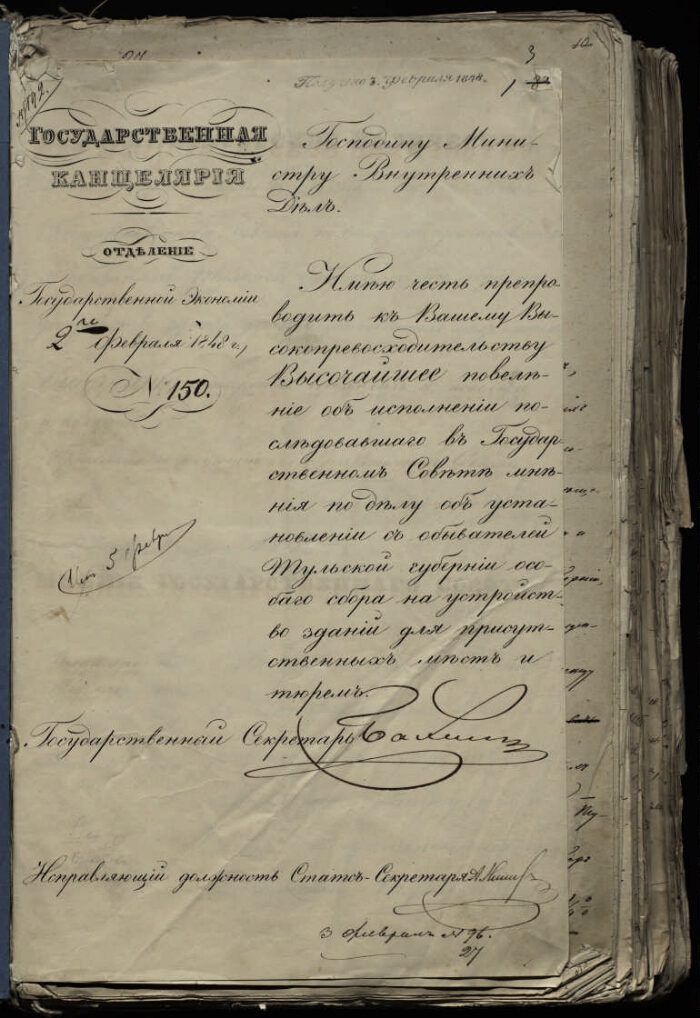 3
Получено 3. февраля 1848.
1
№ 192.
ГОСУДАРСТВЕННАЯ
КАНЦЕЛЯРІЯ
ОТДѢЛЕНІЕ
Государственной Экономіи
2го февраля 1848 г.,
№ 150.
Господину Мини-
стру Внутреннихъ
Дѣлъ.
Имѣю честь препро-
водить къ Вашему Вы-
сокопревосходительству
Высочайшее повелѣ-
ніе объ исполненіи по-
слѣдовавшаго въ Государ-
ственномъ Совѣтѣ мнѣ-
нія по дѣлу объ уста-
новленіи съ обывателей
Тульской губерніи осо-
баго сбора на устройст-
во зданій для присут-
ственныхъ мѣстъ и
тюремъ.
5 февр
Государственный Секретарь
Исправляющій должность Статсъ-Секретаря
3 февраля № 96.
27